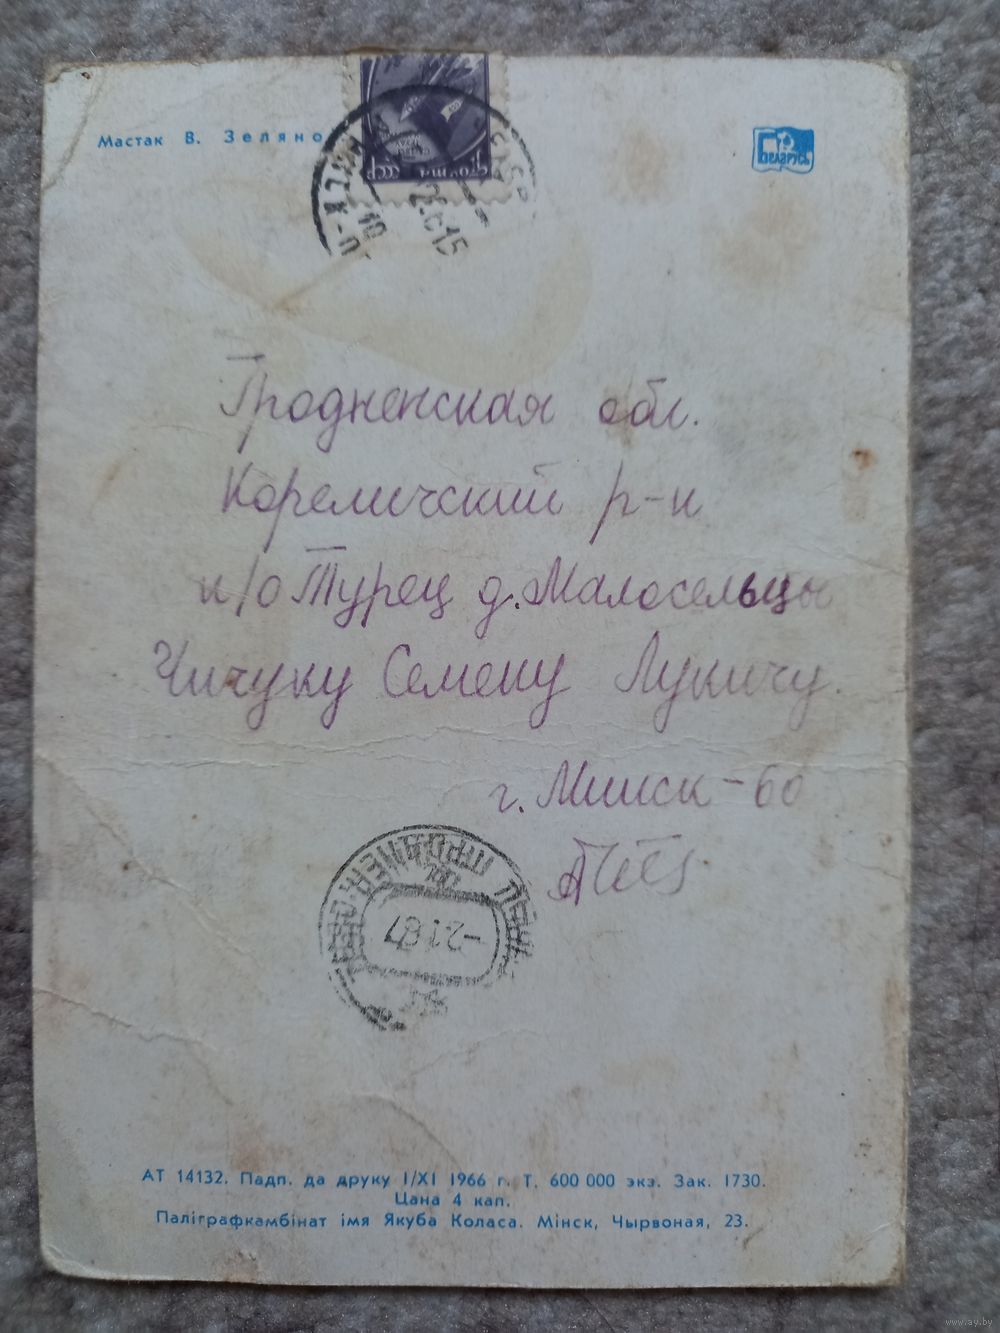 Мастак В. Зеляно
БЕЛАРУСЬ
почта
СССР
Гродненская обл.
Кореличский р-н
п/о Турец д. Малосельцы
Чичуку Семену Лукичу.
г. Минск-60
-2 1 67
АТ 14132. Падп. да друку 1/XI 1966 г. Т. 600 000 экз. Зак. 1730.
Цана 4 кап.
Паліграфкамбінат імя Якуба Коласа. Мінск, Чырвоная, 23.
www.ay.by